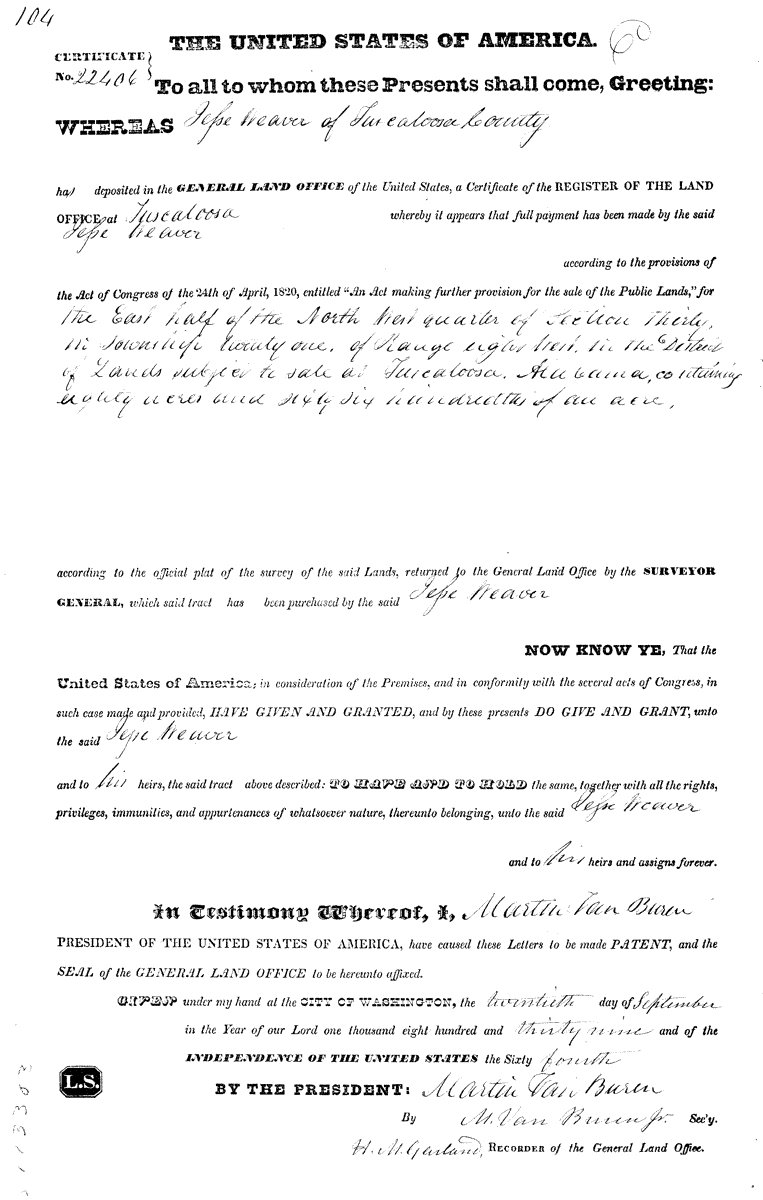 104
THE UNITED STATES OF AMERICA.
CERTIFICATE
No. 22406
To all to whom these Presents shall come, Greeting:
WHEREAS Jesse Weaver of Tuscaloosa County
has deposited in the GENERAL LAND OFFICE of the United States, a Certificate of the REGISTER OF THE LAND
OFFICE at Tuscaloosa whereby it appears that full payment has been made by the said
Jesse Weaver
according to the provisions of
the Act of Congress of the 24th of April, 1820, entitled “An Act making further provision for the sale of the Public Lands,” for
the East half of the North West quarter of Section Thirty,
in Township twenty one, of Range eight West, in the District
of Lands subject to sale at Tuscaloosa, Alabama, containing
eighty acres and sixty six hundredths of an acre,
according to the official plat of the survey of the said Lands, returned to the General Land Office by the SURVEYOR
GENERAL, which said tract has been purchased by the said Jesse Weaver
NOW KNOW YE, That the
United States of America, in consideration of the Premises, and in conformity with the several acts of Congress, in
such case made and provided, HAVE GIVEN AND GRANTED, and by these presents DO GIVE AND GRANT, unto
the said Jesse Weaver
and to his heirs, the said tract above described: TO HAVE AND TO HOLD the same, together with all the rights,
privileges, immunities, and appurtenances of whatsoever nature, thereunto belonging, unto the said Jesse Weaver
and to his heirs and assigns forever.
In Testimony Whereof, I, Martin Van Buren
PRESIDENT OF THE UNITED STATES OF AMERICA, have caused these Letters to be made PATENT, and the
SEAL of the GENERAL LAND OFFICE to be hereunto affixed.
GIVEN under my hand at the CITY OF WASHINGTON, the twentieth day of September
in the Year of our Lord one thousand eight hundred and thirty nine and of the
INDEPENDENCE OF THE UNITED STATES the Sixty fourth
L.S.
BY THE PRESIDENT: Martin Van Buren
By M. Van Buren Jr. Sec'y.
H. M. Garland, RECORDER of the General Land Office.